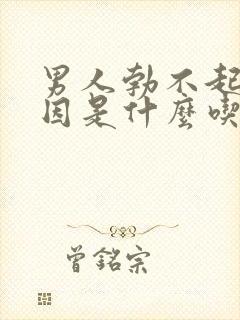 男人勃不起
因是什麼喫
曾銘宗